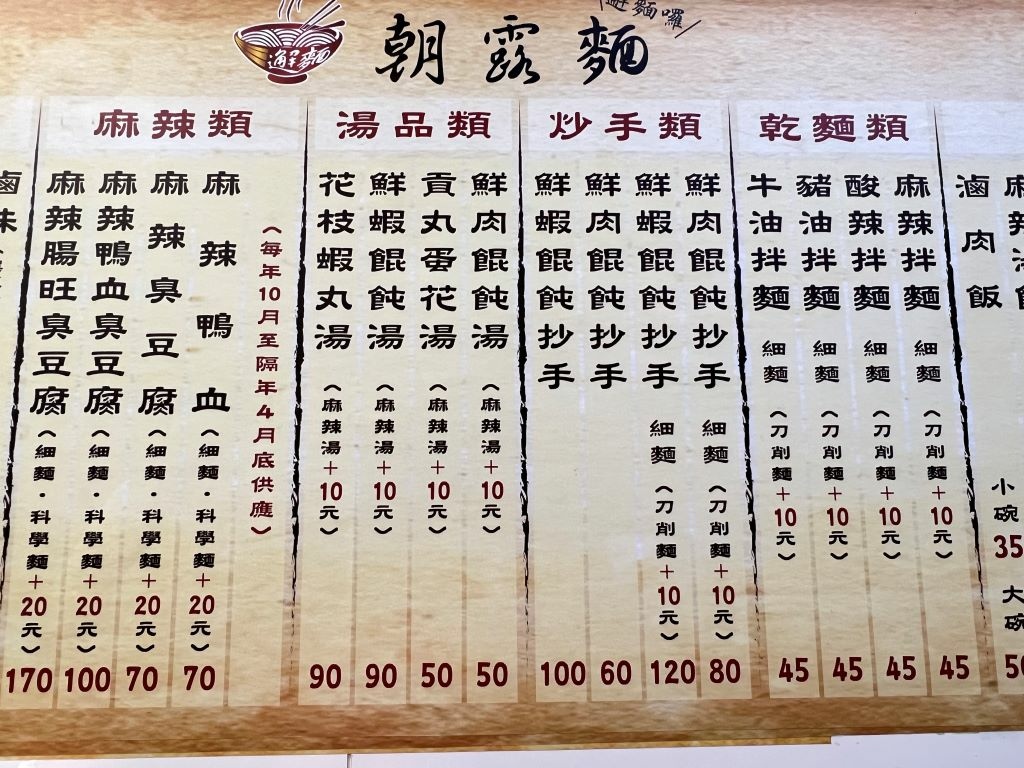 邂麵
朝露麵
乾麵類
麻辣拌麵 細麵（刀削麵+10元） 45
酸辣拌麵 細麵（刀削麵+10元） 45
豬油拌麵 細麵（刀削麵+10元） 45
牛油拌麵 細麵（刀削麵+10元） 45
炒手類
鮮肉餛飩抄手 細麵（刀削麵+10元） 80
鮮蝦餛飩抄手 細麵（刀削麵+10元） 120
鮮肉餛飩抄手 60
鮮蝦餛飩抄手 100
湯品類
鮮肉餛飩湯（麻辣湯+10元） 50
貢丸蛋花湯（麻辣湯+10元） 50
鮮蝦餛飩湯（麻辣湯+10元） 90
花枝蝦丸湯（麻辣湯+10元） 90
麻辣類
（每年10月至隔年4月底供應）
麻辣鴨血（細麵·科學麵+20元） 70
麻辣臭豆腐（細麵·科學麵+20元） 70
麻辣鴨血臭豆腐（細麵·科學麵+20元） 100
麻辣腸旺臭豆腐（細麵·科學麵+20元） 170
滷肉飯 小碗 35 大碗
滷味